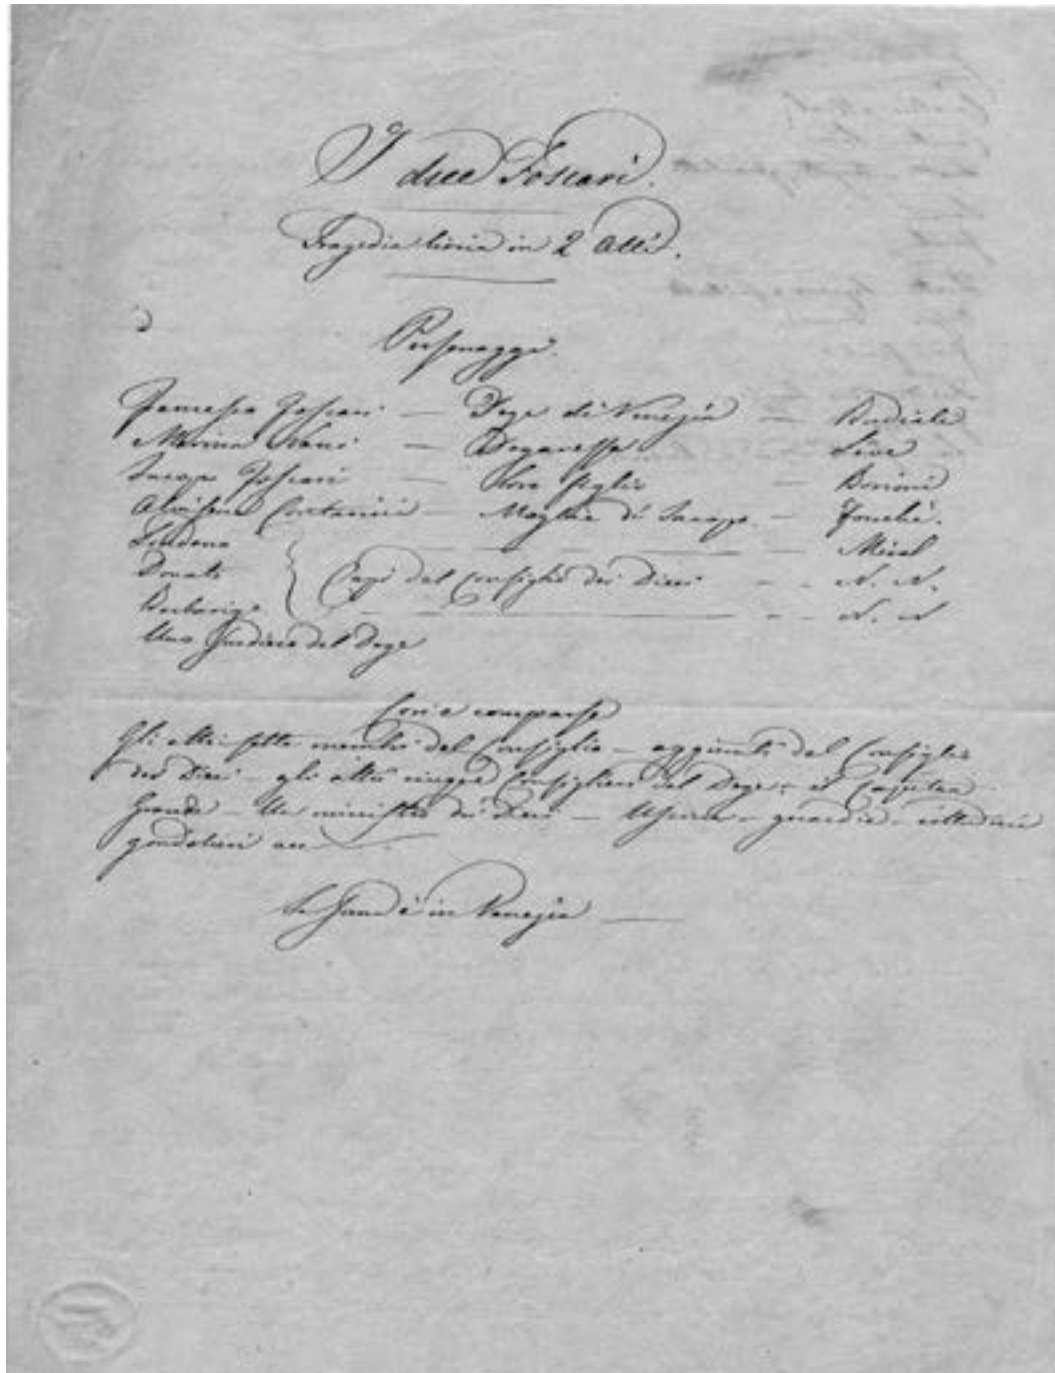 I due Foscari.
Tragedia lirica in 2 Atti.
Personaggi
Francesco Foscari — Doge di Venezia — Badiali
Marina Nani — Dogaressa —
Jacopo Foscari — loro figlio —
Alvisena Contarini — Moglie di Jacopo —
Loredano — Miral
Donato Capi del Consiglio dei Dieci — N. N.
Barbarigo — N. N
Una fantesca del Doge
Cori e comparse
Gli altri sette membri del Consiglio — aggiunti del Consiglio
dei Dieci — gli altri cinque Consiglieri del Doge — il Capitan
Grande — Un ministro dei Dieci — Uscieri — guardie — cittadini
gondolieri
La Scena è in Venezia —